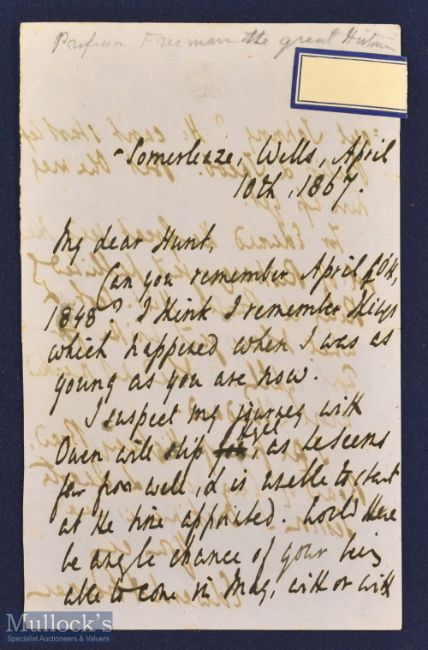 Professor Freeman the great Historian
Somerleaze, Wells, April
10th, 1867.
My dear Hunt,
Can you remember April 10th,
1848? I think I remember things
which happened when I was as
young as you are now.
I suspect my journey with
Owen will slip over, as he seems
far from well, & is unable to start
at the time appointed. Could there
be any chance of your being
able to come in May, with or with
Mullock's
Specialist Auctioneers & Valuers